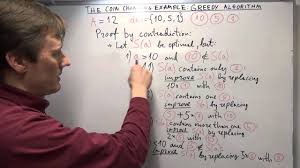 THE COIN CHANGING EXAMPLE: GREEDY ALGORITHM
A = 12 den = {10, 5, 1} 10 5 1
Proof by contradiction:
• Let S(a) be optimal, but:
1) a >= 10 and 10 ∉ S(a)
S(a) contains only
improve S(a) by replacing
10 x 1 with 10
S(a) contains one 5
improve S(a) by replacing
5 + 5 x 1 with
S(a) contains more than one
improve S(a) by replacing
2 x 5 with
10 and S(a)
improve S(a) by replacing 5 x 1
with 5